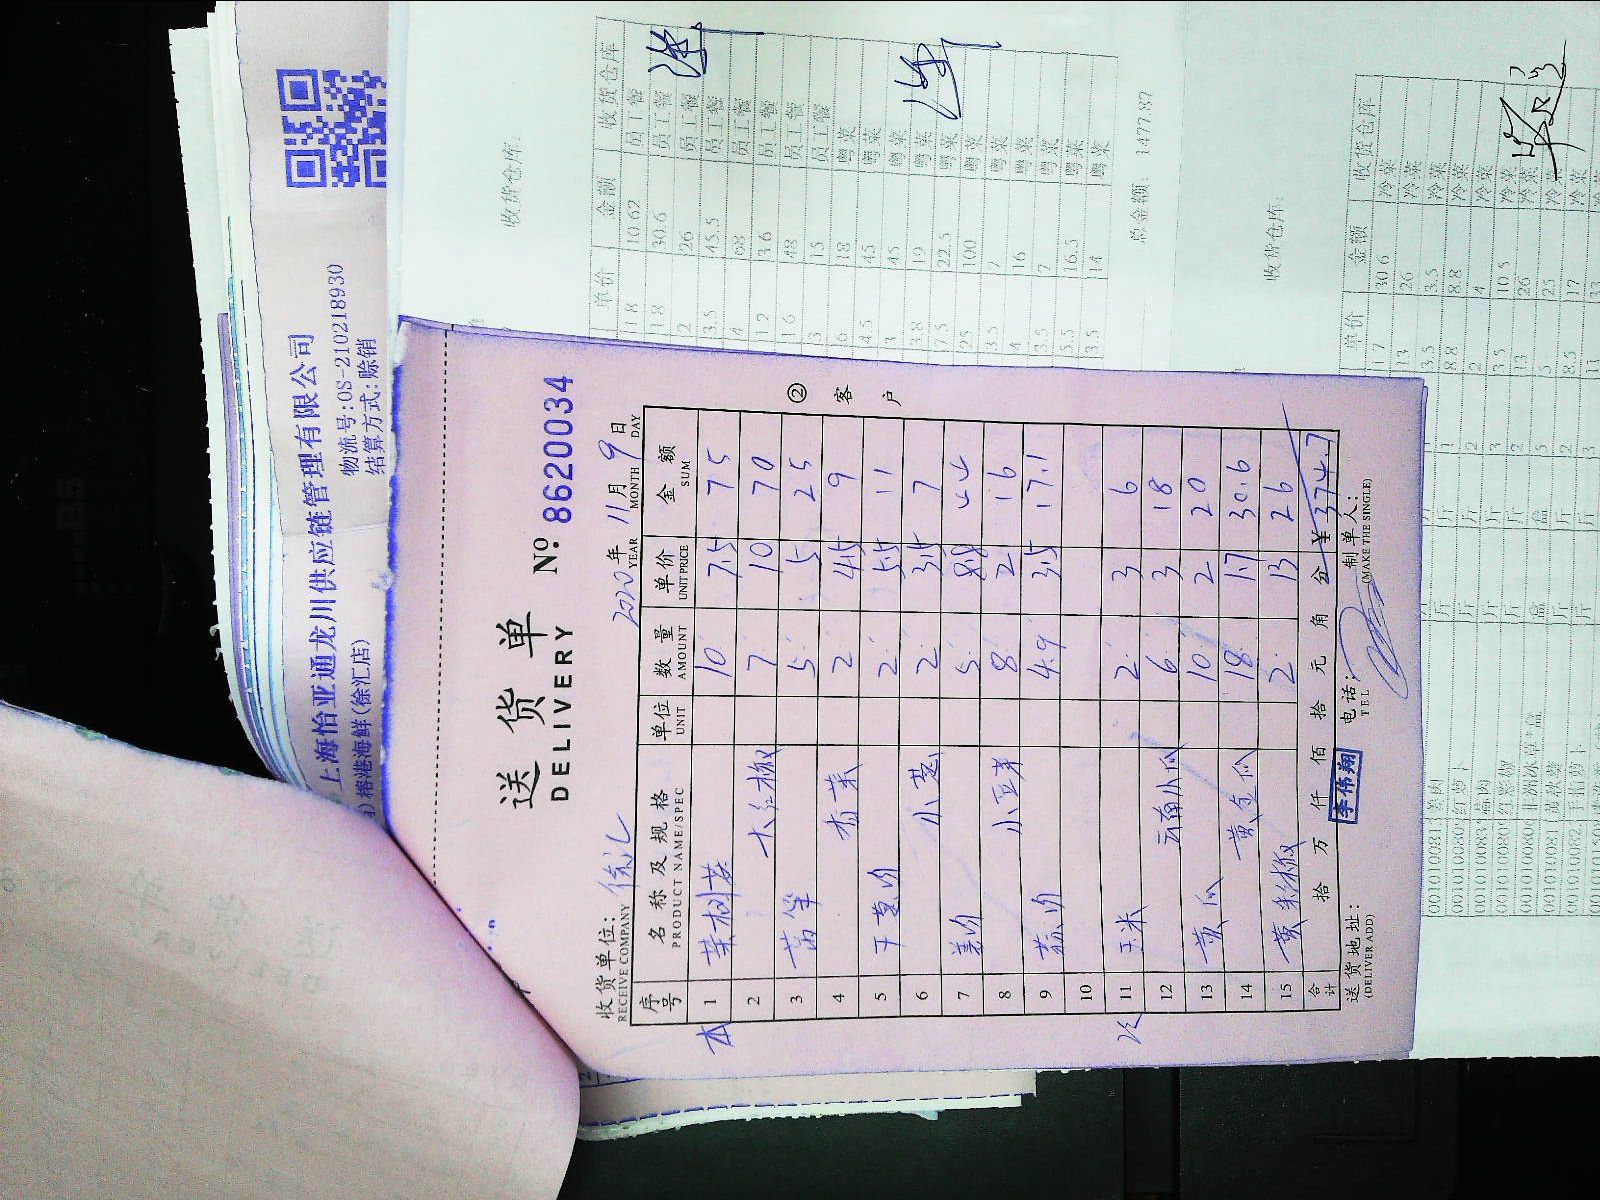 上海怡亚通龙川供应链管理有限公司
物流号:OS-210218930
榕港海鲜(徐汇店)
结算方式:赊销
送货单
DELIVERY
№ 8620034
收货单位: 徐汇
RECEIVE COMPANY
2020年 11月 9日
YEAR MONTH DAY
序号 名称及规格 单位 数量 单价 金额
PRODUCT NAME/SPEC UNIT AMOUNT UNIT PRICE SUM
本 1 茶树菇 10 7.5 75
2 大红椒 7 10 70
3 莴笋 5 5 25
4 香菜 2 4.5 9
5 干葱肉 2 5.5 11
6 小葱 2 3.5 7
7 姜肉 5 8.8 44
8 小豆芽 8 2 16
9 蒜肉 4.9 3.5 17.1
10
冷 11 玉米 2 3 6
12 云南小瓜 6 3 18
13 黄瓜 10 2 20
14 黄金瓜 18 1.7 30.6
15 黄彩椒 2 13 26
合计 拾 万 仟 佰 拾 元 角 分 ¥ 374.7
送货地址: 李伟翔 电话: 制单人:
(DELIVER ADD) TEL (MAKE THE SINGLE)
② 客户
收货仓库:
单价 金额 收货仓库
1.8 10.62 员工餐
1.8 30.6 员工餐
2 26 员工餐
3.5 45.5 员工餐
4 68 员工餐
1.2 3.6 员工餐
1.6 48 员工餐
3 15 员工餐
6 18 粤菜
4.5 45 粤菜
3 45 粤菜
3.8 19 粤菜
7.5 22.5 粤菜
25 100 粤菜
3.5 7 粤菜
4 16 粤菜
3.5 7 粤菜
5.5 16.5 粤菜
3.5 14 粤菜
总金额: 1477.87
收货仓库:
单价 金额 收货仓库
1.7 30.6 冷菜
13 26 冷菜
3.5 3.5 冷菜
8.8 8.8 冷菜
2 4 冷菜
3.5 10.5 冷菜
13 26 冷菜
5 25 冷菜
8.5 17 冷菜
11 33 冷菜